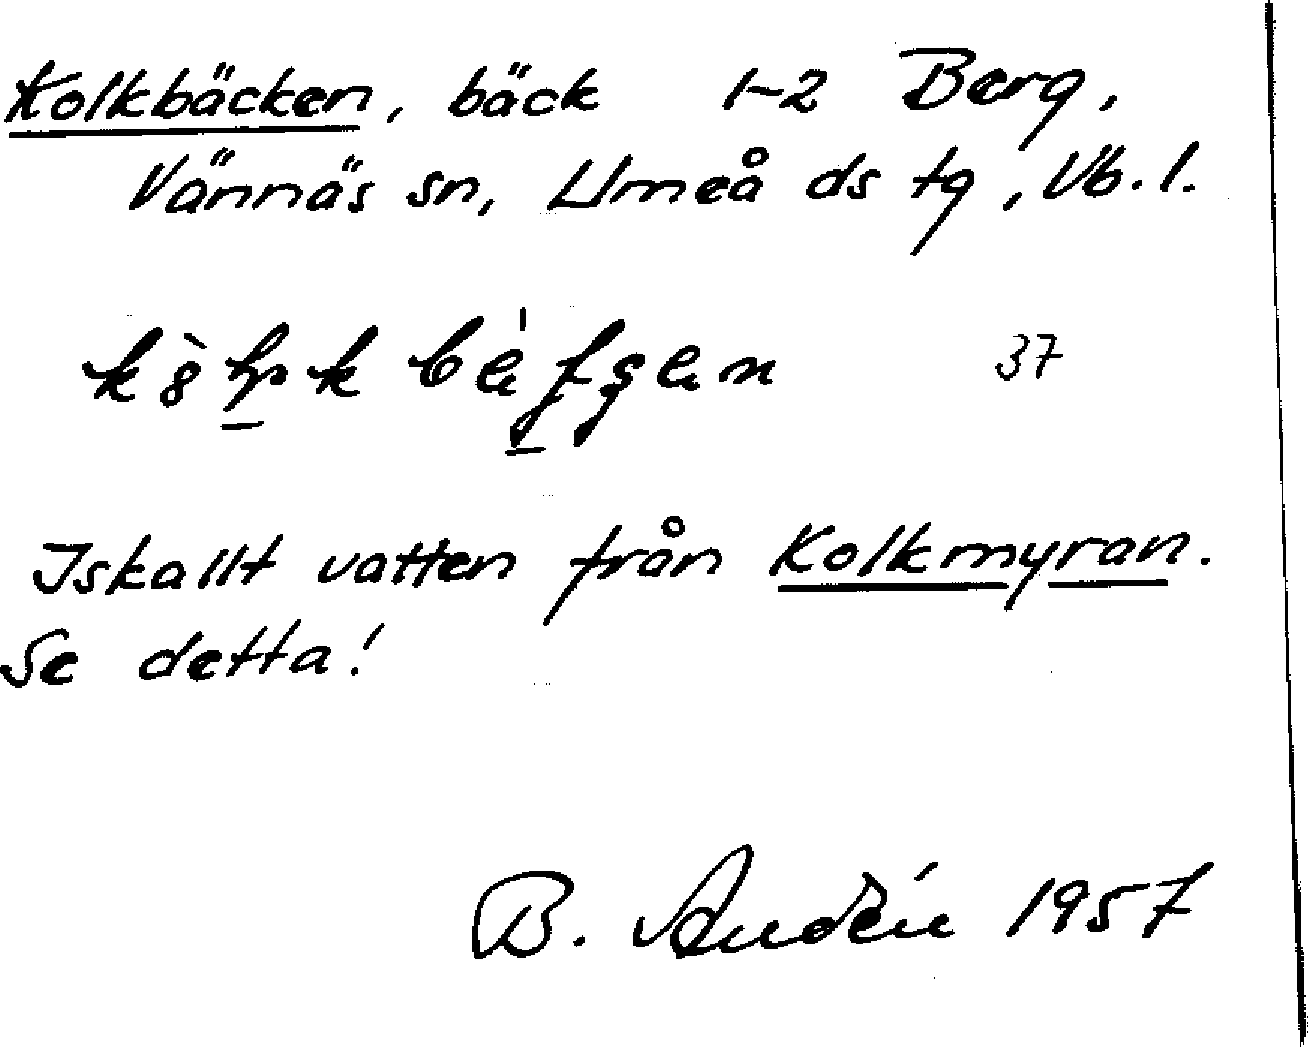 Kolkbäcken, bäck 1-2 Berg,
Vännäs sn, Umeå ds tg, Vb. l.
37
Iskallt vatten från Kolkmyran.
Se detta!
B. Audén 1957